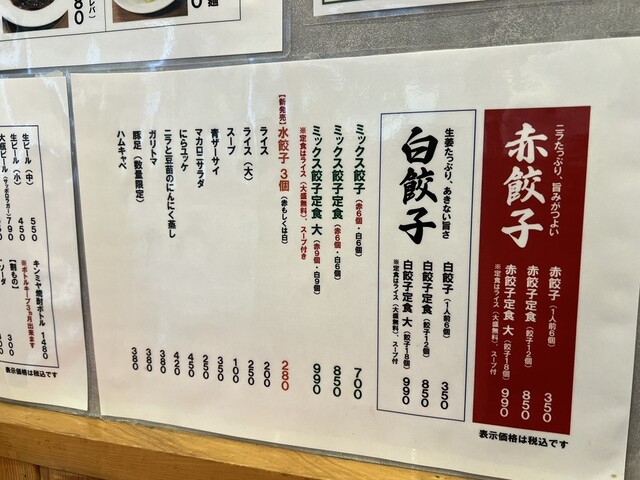 ニラたっぷり、旨みがつよい
赤餃子
赤餃子（1人前6個） 350
赤餃子定食（餃子12個） 850
赤餃子定食 大（餃子18個） 990
※定食はライス（大盛無料）、スープ付
生姜たっぷり、あきない旨さ
白餃子
白餃子（1人前6個） 350
白餃子定食（餃子12個） 850
白餃子定食 大（餃子18個） 990
※定食はライス（大盛無料）、スープ付
ミックス餃子（赤6個・白6個） 700
ミックス餃子定食（赤6個・白6個） 850
ミックス餃子定食 大（赤9個・白9個） 990
※定食はライス（大盛無料）、スープ付き
【新発売】水餃子 3個（赤もしくは白） 280
ライス 200
ライス（大） 250
スープ 100
青ザーサイ 350
マカロニサラダ 250
にらユッケ 450
ニラと豆苗のにんにく蒸し 420
ガリトマ 380
豚足（数量限定） 380
ハムキャベ 380
表示価格は税込です
生ビール（中） 550
生ビール（小） 450
大瓶ビール（サッポロラガー） 790
キンミヤ焼酎ボトル 1480
※ボトルキープ3ヵ月出来ます
【割もの】
ソーダ 300
表示価格は税込です
レバ）
80
麺
0